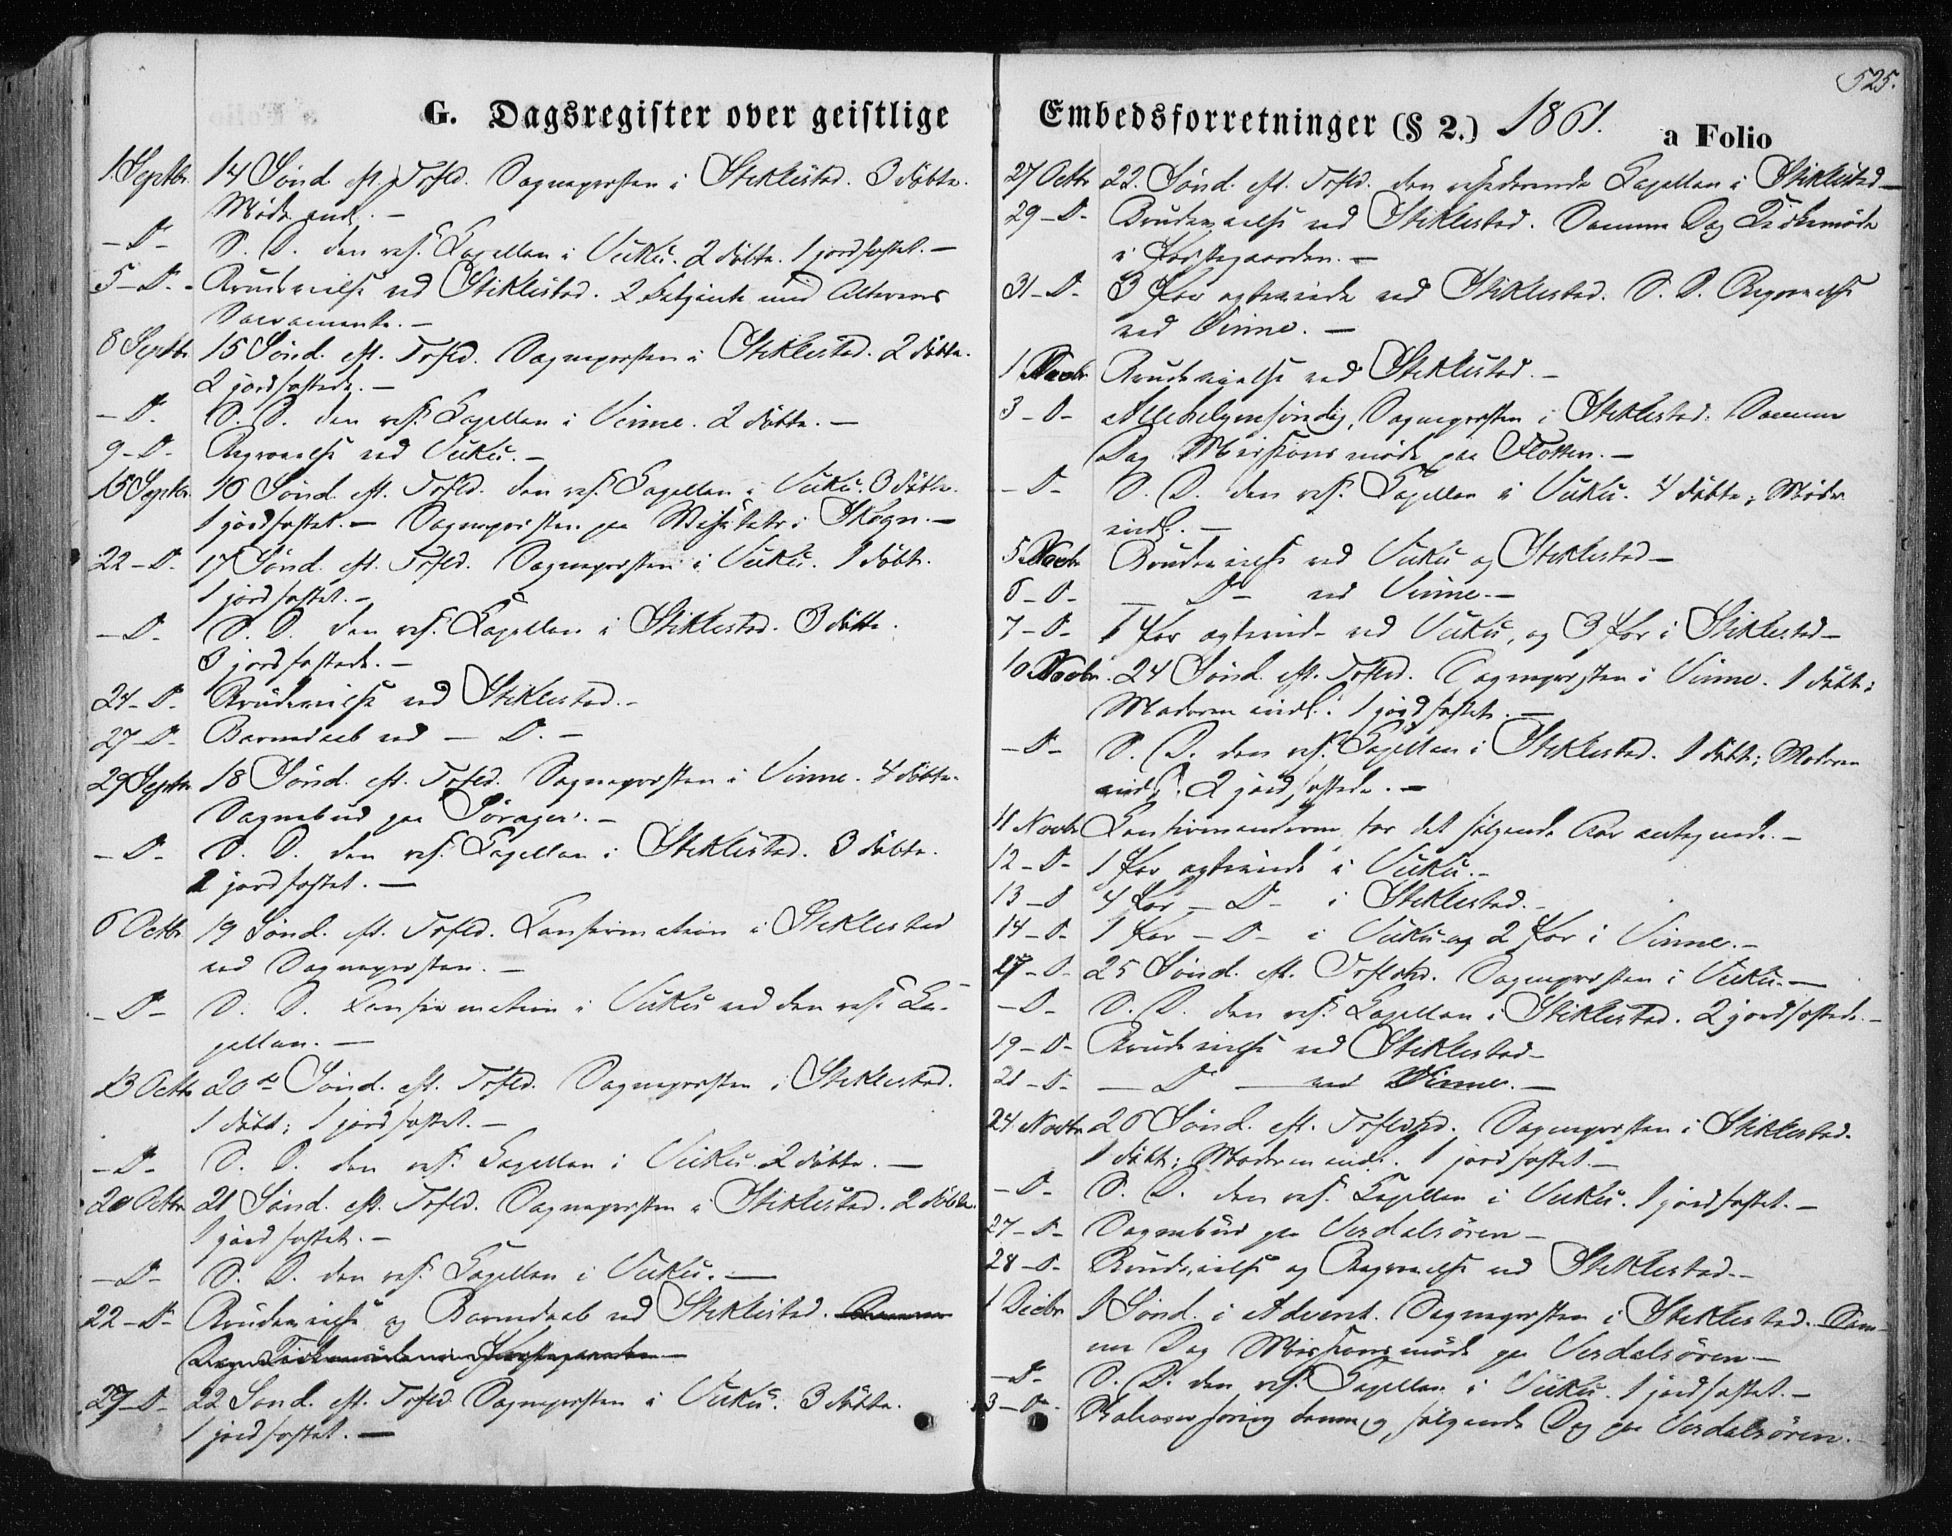 525.
G. Dagsregister over geistlige Embedsforretninger (§ 2.) 1861. a Folio
1 Septbr. 14 Sönd. eft. Trfld. Sognepræsten i Stiklestad. 3 döbte.
Mödr. indl. —
— D — S. D. den res. Capellan i Vuku. 2 döbte. 1 jordfæstet. —
5 — D. — Brudevielse ved Stiklestad. 2 betjente med Alterens
Sacramente. —
8 Septbr. 15 Sönd. eft. Trfld. Sognepræsten i Stiklestad. 2 döbte.
2 jordfæstede. —
— D. S. D. den res. Capellan i Vinne. 2 döbte. —
9 — D. Begravelse ved Vuku. —
15 Septbr. 16 Sönd. eft. Trfld. den res. Capellan i Vuku. 3 döbte.
1 jordfæstet. — Sognepræsten paa Visitats i Skogn. —
22 — D. 17 Sönd. eft. Trfld. Sognepræsten i Vuku. 1 döbt.
1 jordfæstet. —
— D. S. D. den res. Capellan i Stiklestad. 3 döbte.
3 jordfæstede. —
24 — D. Brudevielse ved Stiklestad. —
27 — D. Barnedaab ved — D. —
29 Septbr. 18 Sönd. eft. Trfld. Sognepræsten i Vinne. 4 döbte.
Sognebud paa
— D — S. D. den res. Capellan i Stiklestad. 3 döbte.
1 jordfæstet. —
6 Octbr. 19 Sönd. eft. Trfld. Confirmation i Stiklestad
ved Sognepræsten. —
— D — S. D. Confirmation i Vuku ved den res. Ca-
pellan. —
13 Octbr. 20de Sönd. eft. Trfld. Sognepræsten i Stiklestad.
1 döbt; 1 jordfæstet. —
— D — S. D. den res. Capellan i Vuku. 2 döbte. —
20 Octbr. 21 Sönd. eft. Trfld. Sognepræsten i Stiklestad. 2 döbte.
1 jordfæstet. —
— D — S. D. den res. Capellan i Vuku. —
22 — D — Brudevielse og Barnedaab ved Stiklestad. Samme
Dag i Præstegaarden —
27 — D — 22 Sönd. eft. Trfld Sognepræsten i Vuku. 3 döbte.
1 jordfæstet. —
27 Octbr 22. Sönd. eft. Trfld. den residerende Capellan i Stiklestad —
29 — D. Brudevielse ved Stiklestad. Samme Dag
i Præstegaarden. —
31 — D. 3 Par ægteviede ved Stiklestad. S. D. Begravelse
ved Vinne. —
1 Novbr Brudevielse ved Stiklestad. —
3 — D — Allehelgensöndag, Sognepræsten i Stiklestad. Samme
Dag Missionsmöde paa Flotten. —
— D — S. D. den res. Capellan i Vuku. 4 döbte; Mödr.
indl. —
5 Novbr Brudevielse ved Vuku og Stiklestad —
6 — D — — D — ved Vinne. —
7 — D — 1 Par ægteviede ved Vuku, og 3 Par i Stiklestad —
10 Novbr. 24 Sönd. eft. Trfld. Sognepræsten i Vinne. 1 döbt;
Moderen indl. 1 jordfæstet. —
— D — S. D. den res. Capellan i Stiklestad. 1 döbt; Moderen
indl. 2 jordfæstede. —
11 Novbr Confirmanderne for det fölgende Aar antegnede. —
12 — D — 1 Par ægteviede i Vuku. —
13 — D 4 Par — D — i Stiklestad. —
14 — D — 1 Par — D — i Vuku og 2 Par i Vinne. —
17 — D — 25 Sönd. eft. Trfld. Sognepræsten i Vuku. —
— D — S. D. den res. Capellan i Stiklestad. 2 jordfæstede. —
19 — D — Brudevielse ved Stiklestad —
21 — D — — D — ved Vinne. —
24 Novbr 26 Sönd. eft. Trfld. Sognepræsten i Stiklestad.
1 döbt; Moderen indl. 1 jordfæstet. —
— D — S. D. den res. Capellan i Vuku. 1 jordfæstet. —
27 — D — Sognebud paa Verdalsören —
28 — D — Brudevielse og Begravelse ved Stiklestad. —
1 Decbr 1 Sönd. i Advent. Sognepræsten i Stiklestad. Sam-
me Dag Missionsmöde paa Verdalsören —
— D — S. D. den res. Capellan i Vuku. 1 jordfæstet. —
3 — D — denne og fölgende Dag paa Verdalsören. —